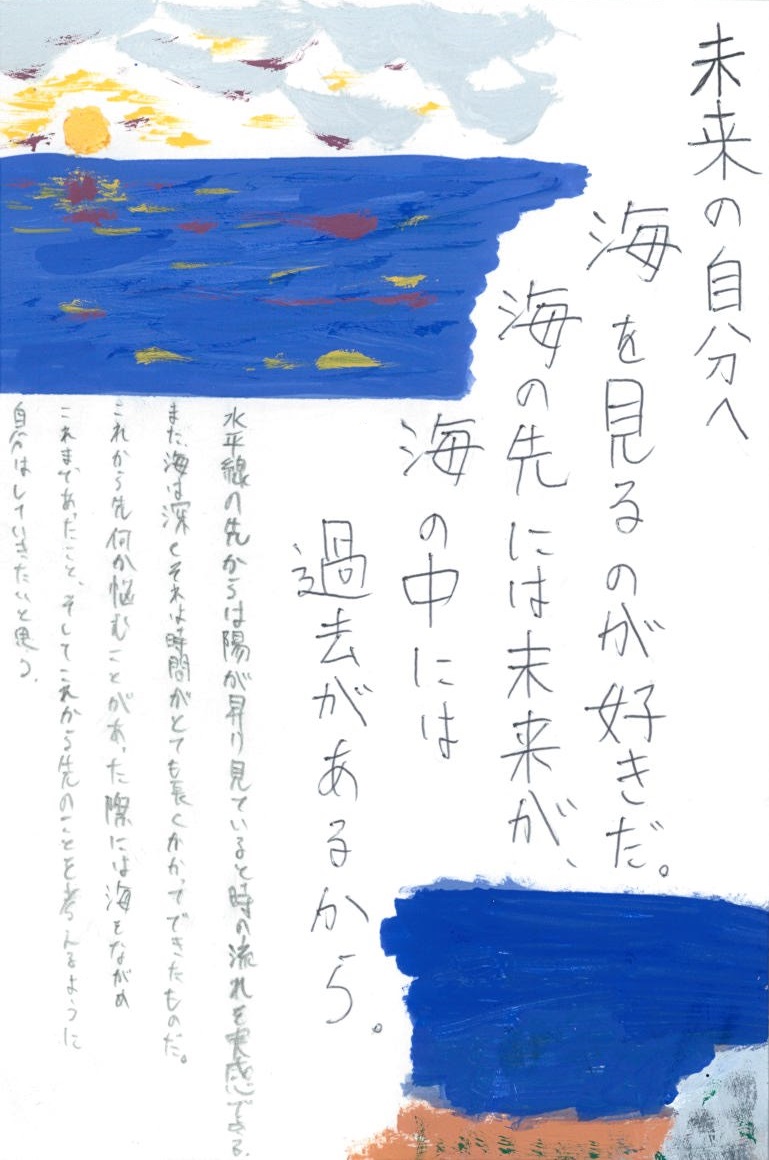 未来の自分へ
海を見るのが好きだ。
海の先には未来が、
海の中には
過去があるから。
水平線の先からは陽が昇り見ていると時の流れを実感できる。
また、海は深くそれは時間がとても長くかかってできたものだ。
これから先何か悩むことがあった際には海をながめ
これまであったこと、そしてこれから先のことを考えるように
自分はしていきたいと思う。